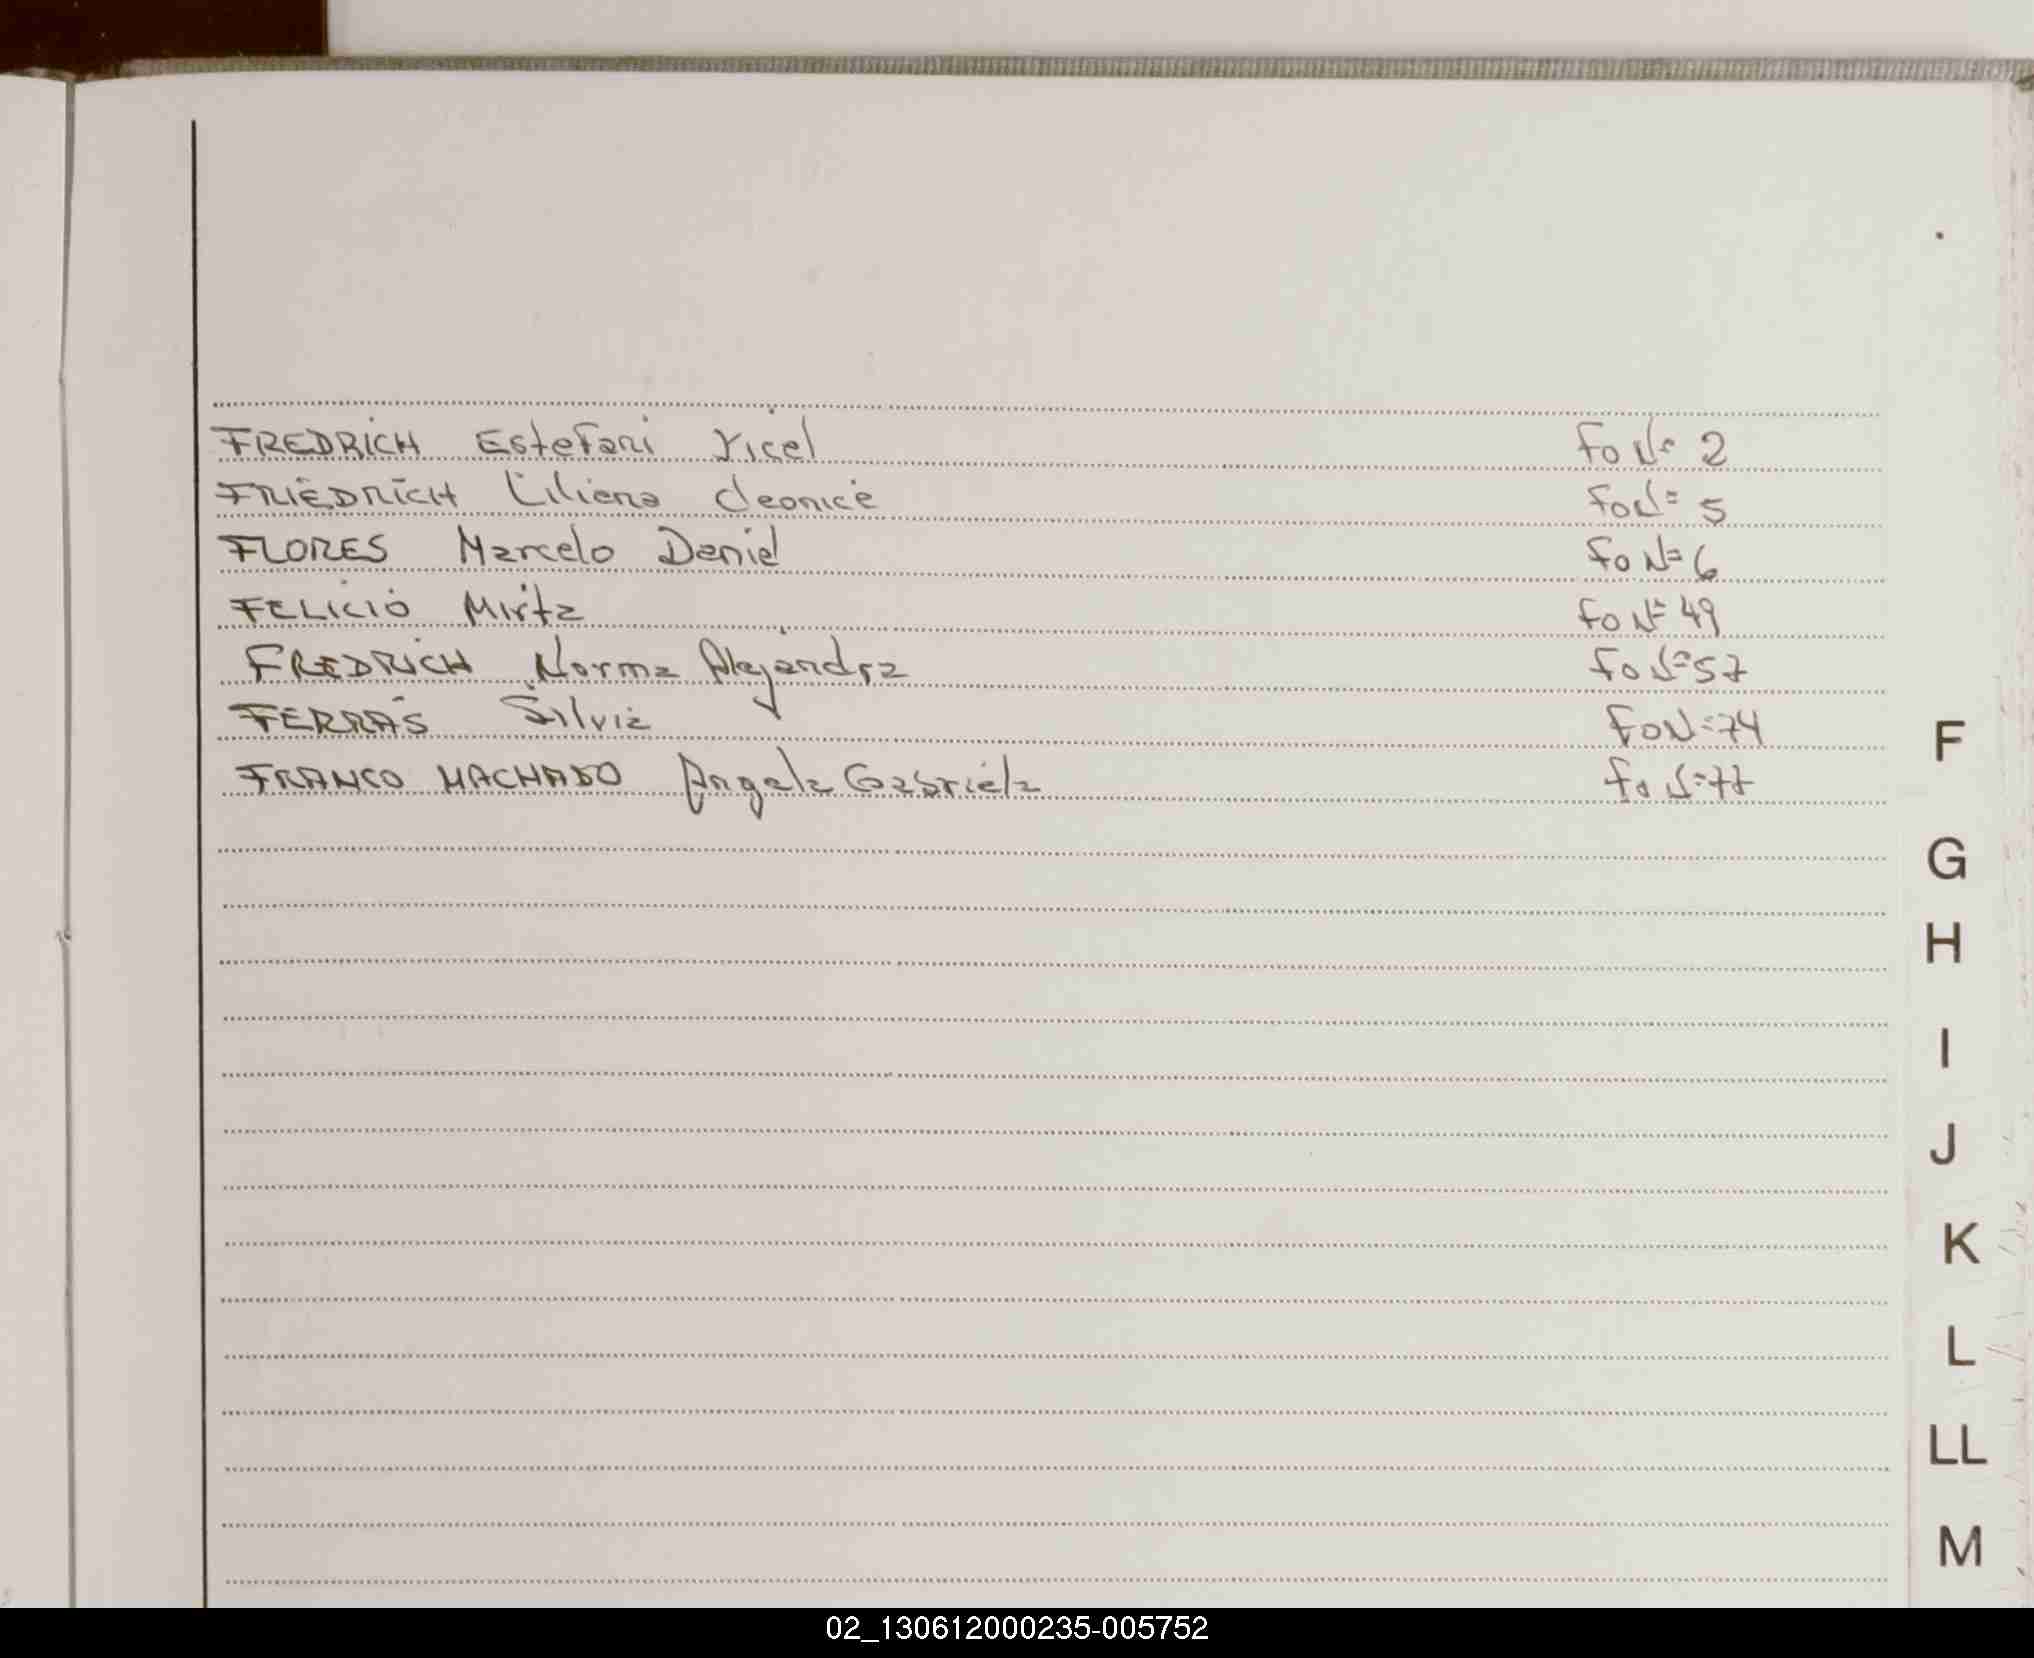 FREDRICH Estefani Yicel Fo Nº 2
FRIEDRICH Liliana Cleonice Fo Nº 5
FLORES Marcelo Daniel Fo Nº 6
FELICIO Mirta Fo Nº 49
FREDRICH Norma Alejandra Fo Nº 57
FERRAS Silvia Fo Nº 74
FRANCO MACHADO Angela Gabriela Fo Nº 77
F
G
H
I
J
K
L
LL
M
02_130612000235-005752